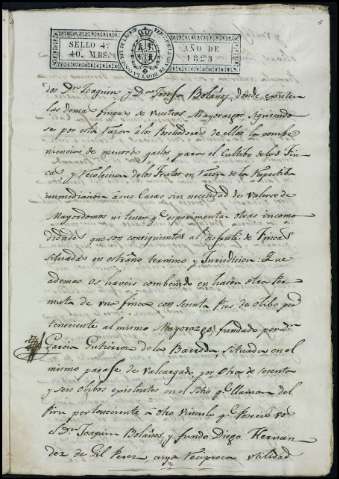 SELLO 4º
40. MRS.
AÑO DE
1823
dos Dn. Joaquin y Dn. Josefa Bolaños, donde existen
las demas fincas de vuestros Mayorazgos, siguiendo
se por esta razon á los Poseedores de ellos la conbe
niencia de menores gastos para el Cultibo de las Fin
cas y recoleccion de los frutos en razon de la respectiba
inmediacion á sus Casas sin necesidad de valerse de
Mayordomos ni tener qe. esperimentar otras incomo
didades que son consiguientes al disfrute de Fincas
situadas en estraño termino y Jurisdicion: Que
ademas os haveis combenido en hacer otra Per
muta de una finca con sesenta Pies de olibo per
teneciente al mismo Mayorazgo fundado por Dn.
Garcia Gutierrez de la Barreda, situada en el
mismo parage de Valcargado, por otra de sesenta
y seis olibos existentes en el sitio qe. llaman del
perteneciente a otro Vinculo qe. Poseeis vos
el Dn. Joaquin Bolaños, y fundo Diego Hernan
dez de Gil Perez cuya reciproca utilidad